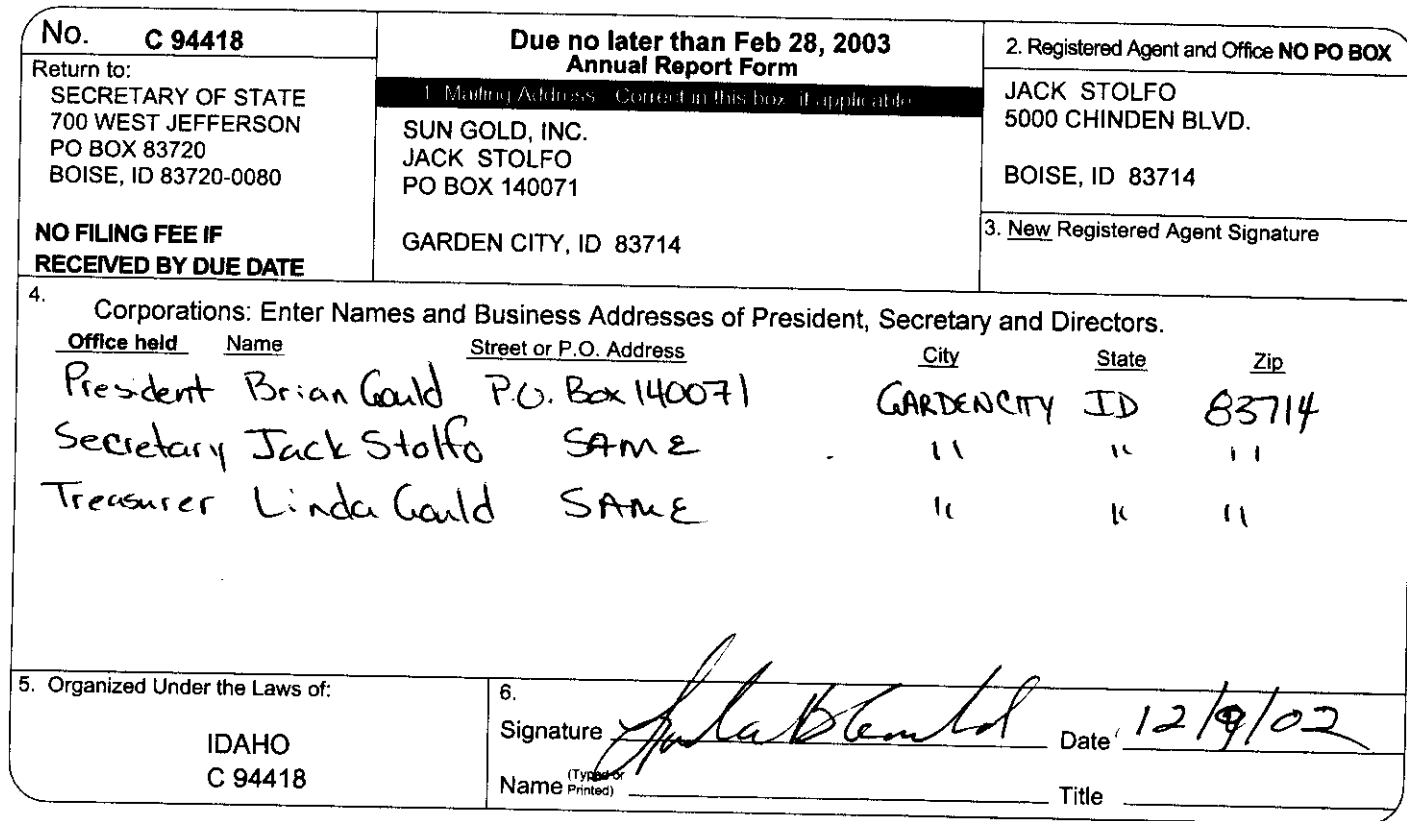 No. C 94418
Return to:
SECRETARY OF STATE
700 WEST JEFFERSON
PO BOX 83720
BOISE, ID 83720-0080
NO FILING FEE IF
RECEIVED BY DUE DATE
Due no later than Feb 28, 2003
Annual Report Form
1. Mailing Address: Correct in this box, if applicable
SUN GOLD, INC.
JACK STOLFO
PO BOX 140071
GARDEN CITY, ID 83714
2. Registered Agent and Office NO PO BOX
JACK STOLFO
5000 CHINDEN BLVD.
BOISE, ID 83714
3. New Registered Agent Signature
4.
Corporations: Enter Names and Business Addresses of President, Secretary and Directors.
Office held Name Street or P.O. Address City State Zip
President Brian Gould P.O. Box 140071 GARDEN CITY ID 83714
Secretary Jack Stolfo SAME " " "
Treasurer Linda Gould SAME " " "
5. Organized Under the Laws of:
IDAHO
C 94418
6.
Signature Linda B Gould Date 12/9/02
Name (Typed or Printed) Title